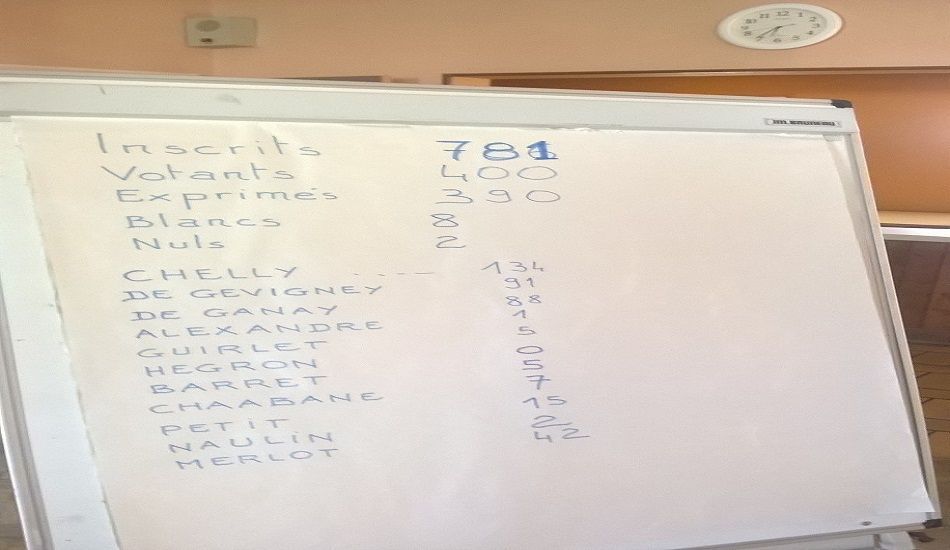 JM.BRUNEAU
Inscrits 781
Votants 400
Exprimés 390
Blancs 8
Nuls 2
CHELLY .... 134
DE GEVIGNEY 91
DE GANAY 88
ALEXANDRE 1
GUIRLET 5
HEGRON 0
BARRET 5
CHAABANE 7
PETIT 15
NAULIN 2
MERLOT 42